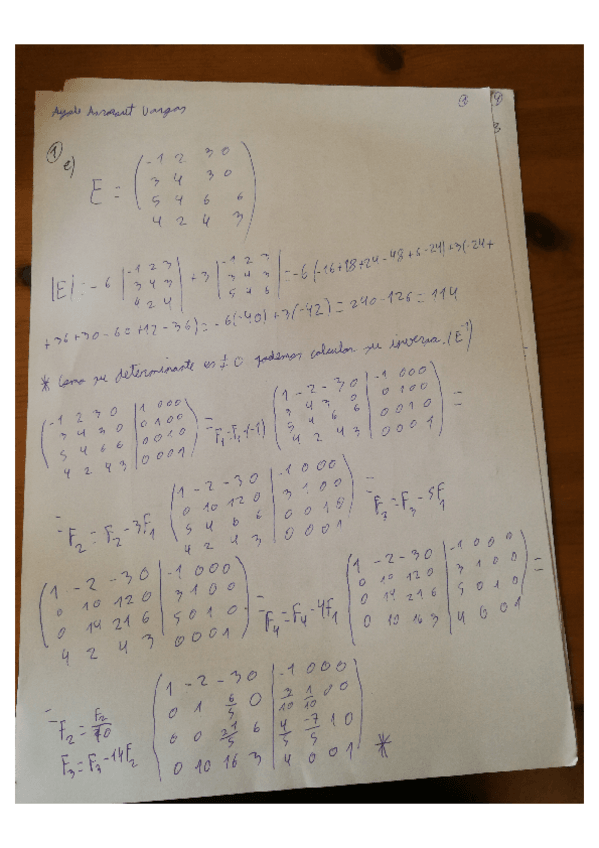 Vargas
1
e)
E = ( -1 2 3 0
3 4 3 0
5 4 6 6
4 2 4 3 )
|E| = -6 | -1 2 3 | + 3 | -1 2 3 | = -6(-16+18+24-48+6-24)+3(-24+
3 4 3 3 4 3
4 2 4 5 4 6
+36+30-60+12-36) = -6(-40)+3(-42) = 240-126 = 114
* Como su determinante es ≠ 0 podemos calcular su inversa. (E⁻¹)
( -1 2 3 0 | 1 0 0 0
3 4 3 0 | 0 1 0 0
5 4 6 6 | 0 0 1 0
4 2 4 3 | 0 0 0 1 )
= F1=F1·(-1)
( 1 -2 -3 0 | -1 0 0 0
3 4 3 0 | 0 1 0 0
5 4 6 6 | 0 0 1 0
4 2 4 3 | 0 0 0 1 ) =
= F2 = F2 - 3F1
( 1 -2 -3 0 | -1 0 0 0
0 10 12 0 | 3 1 0 0
5 4 6 6 | 0 0 1 0
4 2 4 3 | 0 0 0 1 )
= F3 = F3 - 5F1
( 1 -2 -3 0 | -1 0 0 0
0 10 12 0 | 3 1 0 0
0 14 21 6 | 5 0 1 0
4 2 4 3 | 0 0 0 1 )
= F4 = F4 - 4F1
( 1 -2 -3 0 | -1 0 0 0
0 10 12 0 | 3 1 0 0
0 14 21 6 | 5 0 1 0
0 10 16 3 | 4 0 0 1 ) =
= F2 = F2/10
F3 = F3 - 14F2
( 1 -2 -3 0 | -1 0 0 0
0 1 6/5 0 | 3/10 1/10 0 0
0 0 21/5 6 | 4/5 -7/5 1 0
0 10 16 3 | 4 0 0 1 ) *